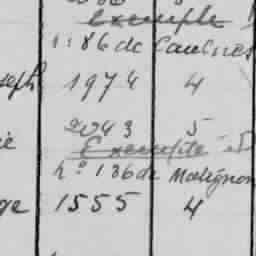 exemple
n: 86 de Caulnes
seph 1974 4
2043 5
Exemple
n° 136 de Matignon
ge 1555 4